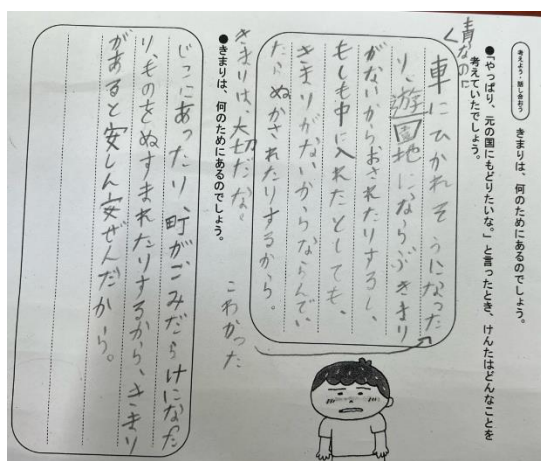 考えよう・話し合おう
きまりは、何のためにあるのでしょう。
●「やっぱり、元の国にもどりたいな。」と言ったとき、けんたはどんなことを
考えていたでしょう。
青なのに
車にひかれそうになった
り、遊園地にならぶきまり
がないからおされたりするし、
もしも中に入れたとしても、
きまりがないからならんでい
たらぬかされたりするから。
きまりは、大切だな
こわかった
●きまりは、何のためにあるのでしょう。
じこにあったり、町がごみだらけになった
り、ものをぬすまれたりするから、きまり
があると安しん安ぜんだから。